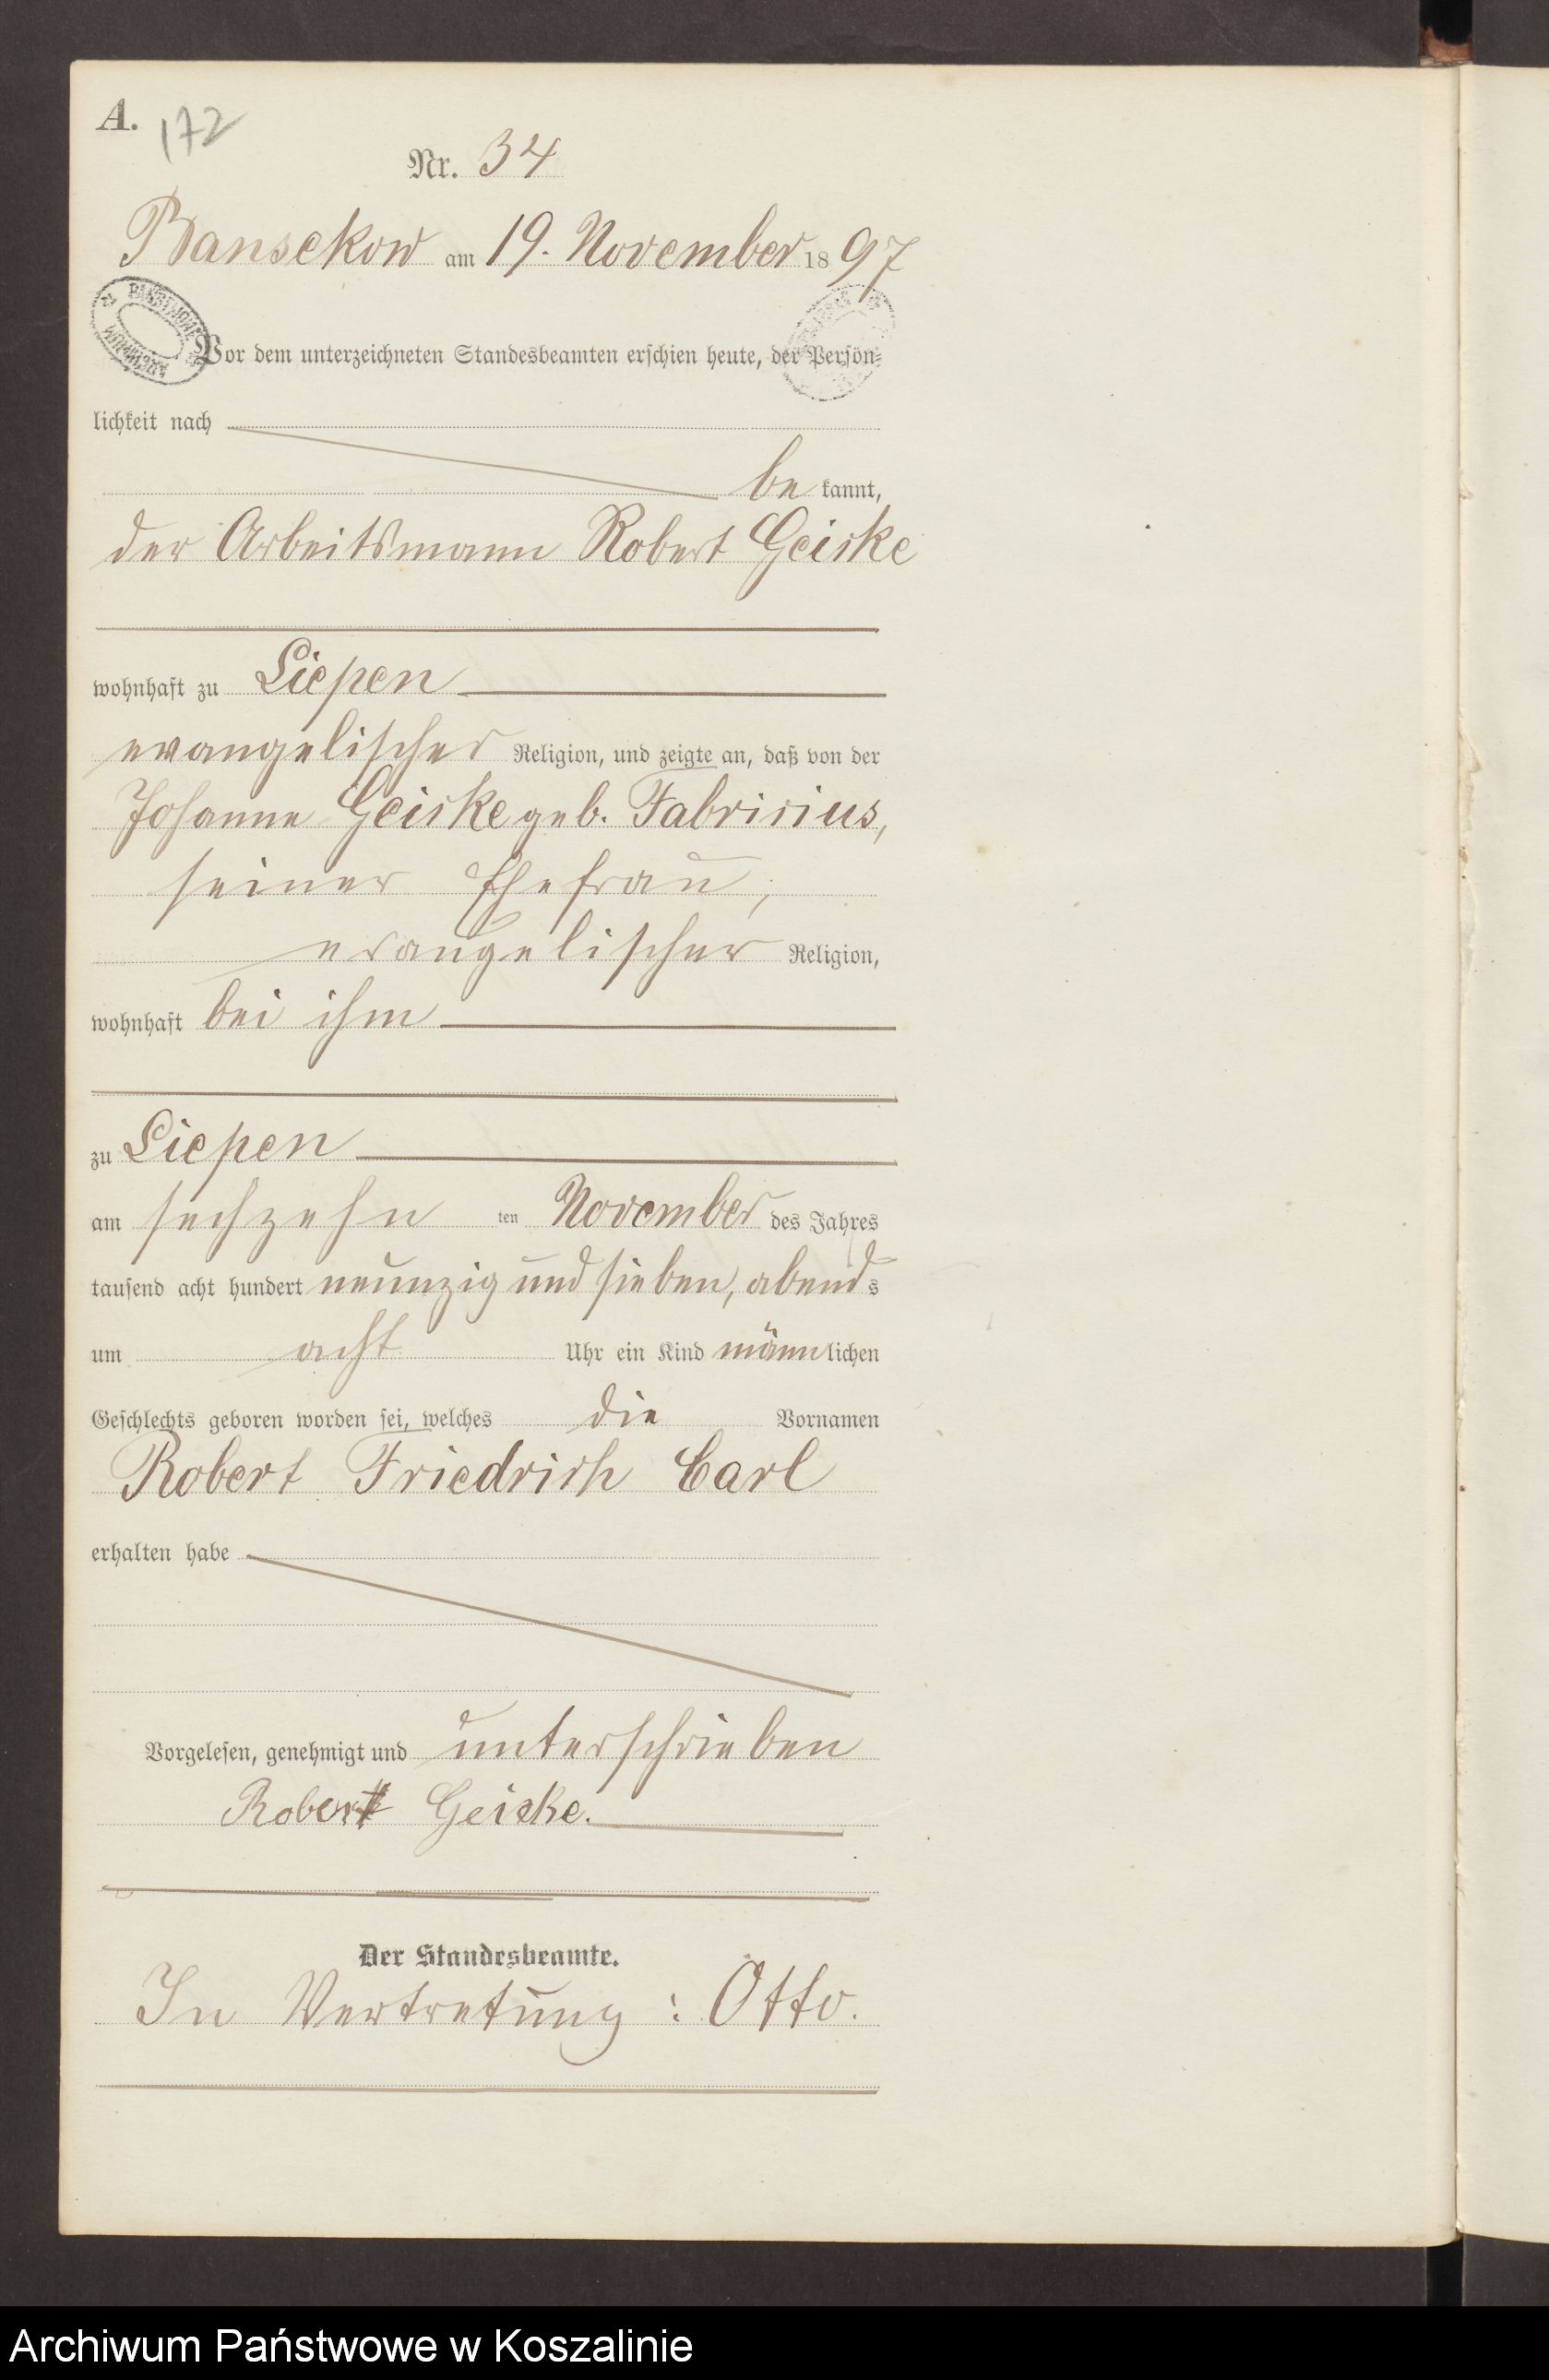 A. 172
Nr. 34
Bansekow am 19. November 1897
PAŃSTWOWE ARCHIWUM
Vor dem unterzeichneten Standesbeamten erschien heute, der Persön-
lichkeit nach
be kannt,
der Arbeitsmann Robert Geiske
wohnhaft zu Liepen
evangelischer Religion, und zeigte an, daß von der
Johanne Geiske geb. Fabricius,
seiner Ehefrau,
evangelischer Religion,
wohnhaft bei ihm
zu Liepen
am sechzehn ten November des Jahres
tausend acht hundert neunzig und sieben, abends
um acht Uhr ein Kind männlichen
Geschlechts geboren worden sei, welches die Vornamen
Robert Friedrich Carl
erhalten habe
Vorgelesen, genehmigt und unterschrieben
Robert Geiske.
Der Standesbeamte.
In Vertretung: Otto.
Archiwum Państwowe w Koszalinie